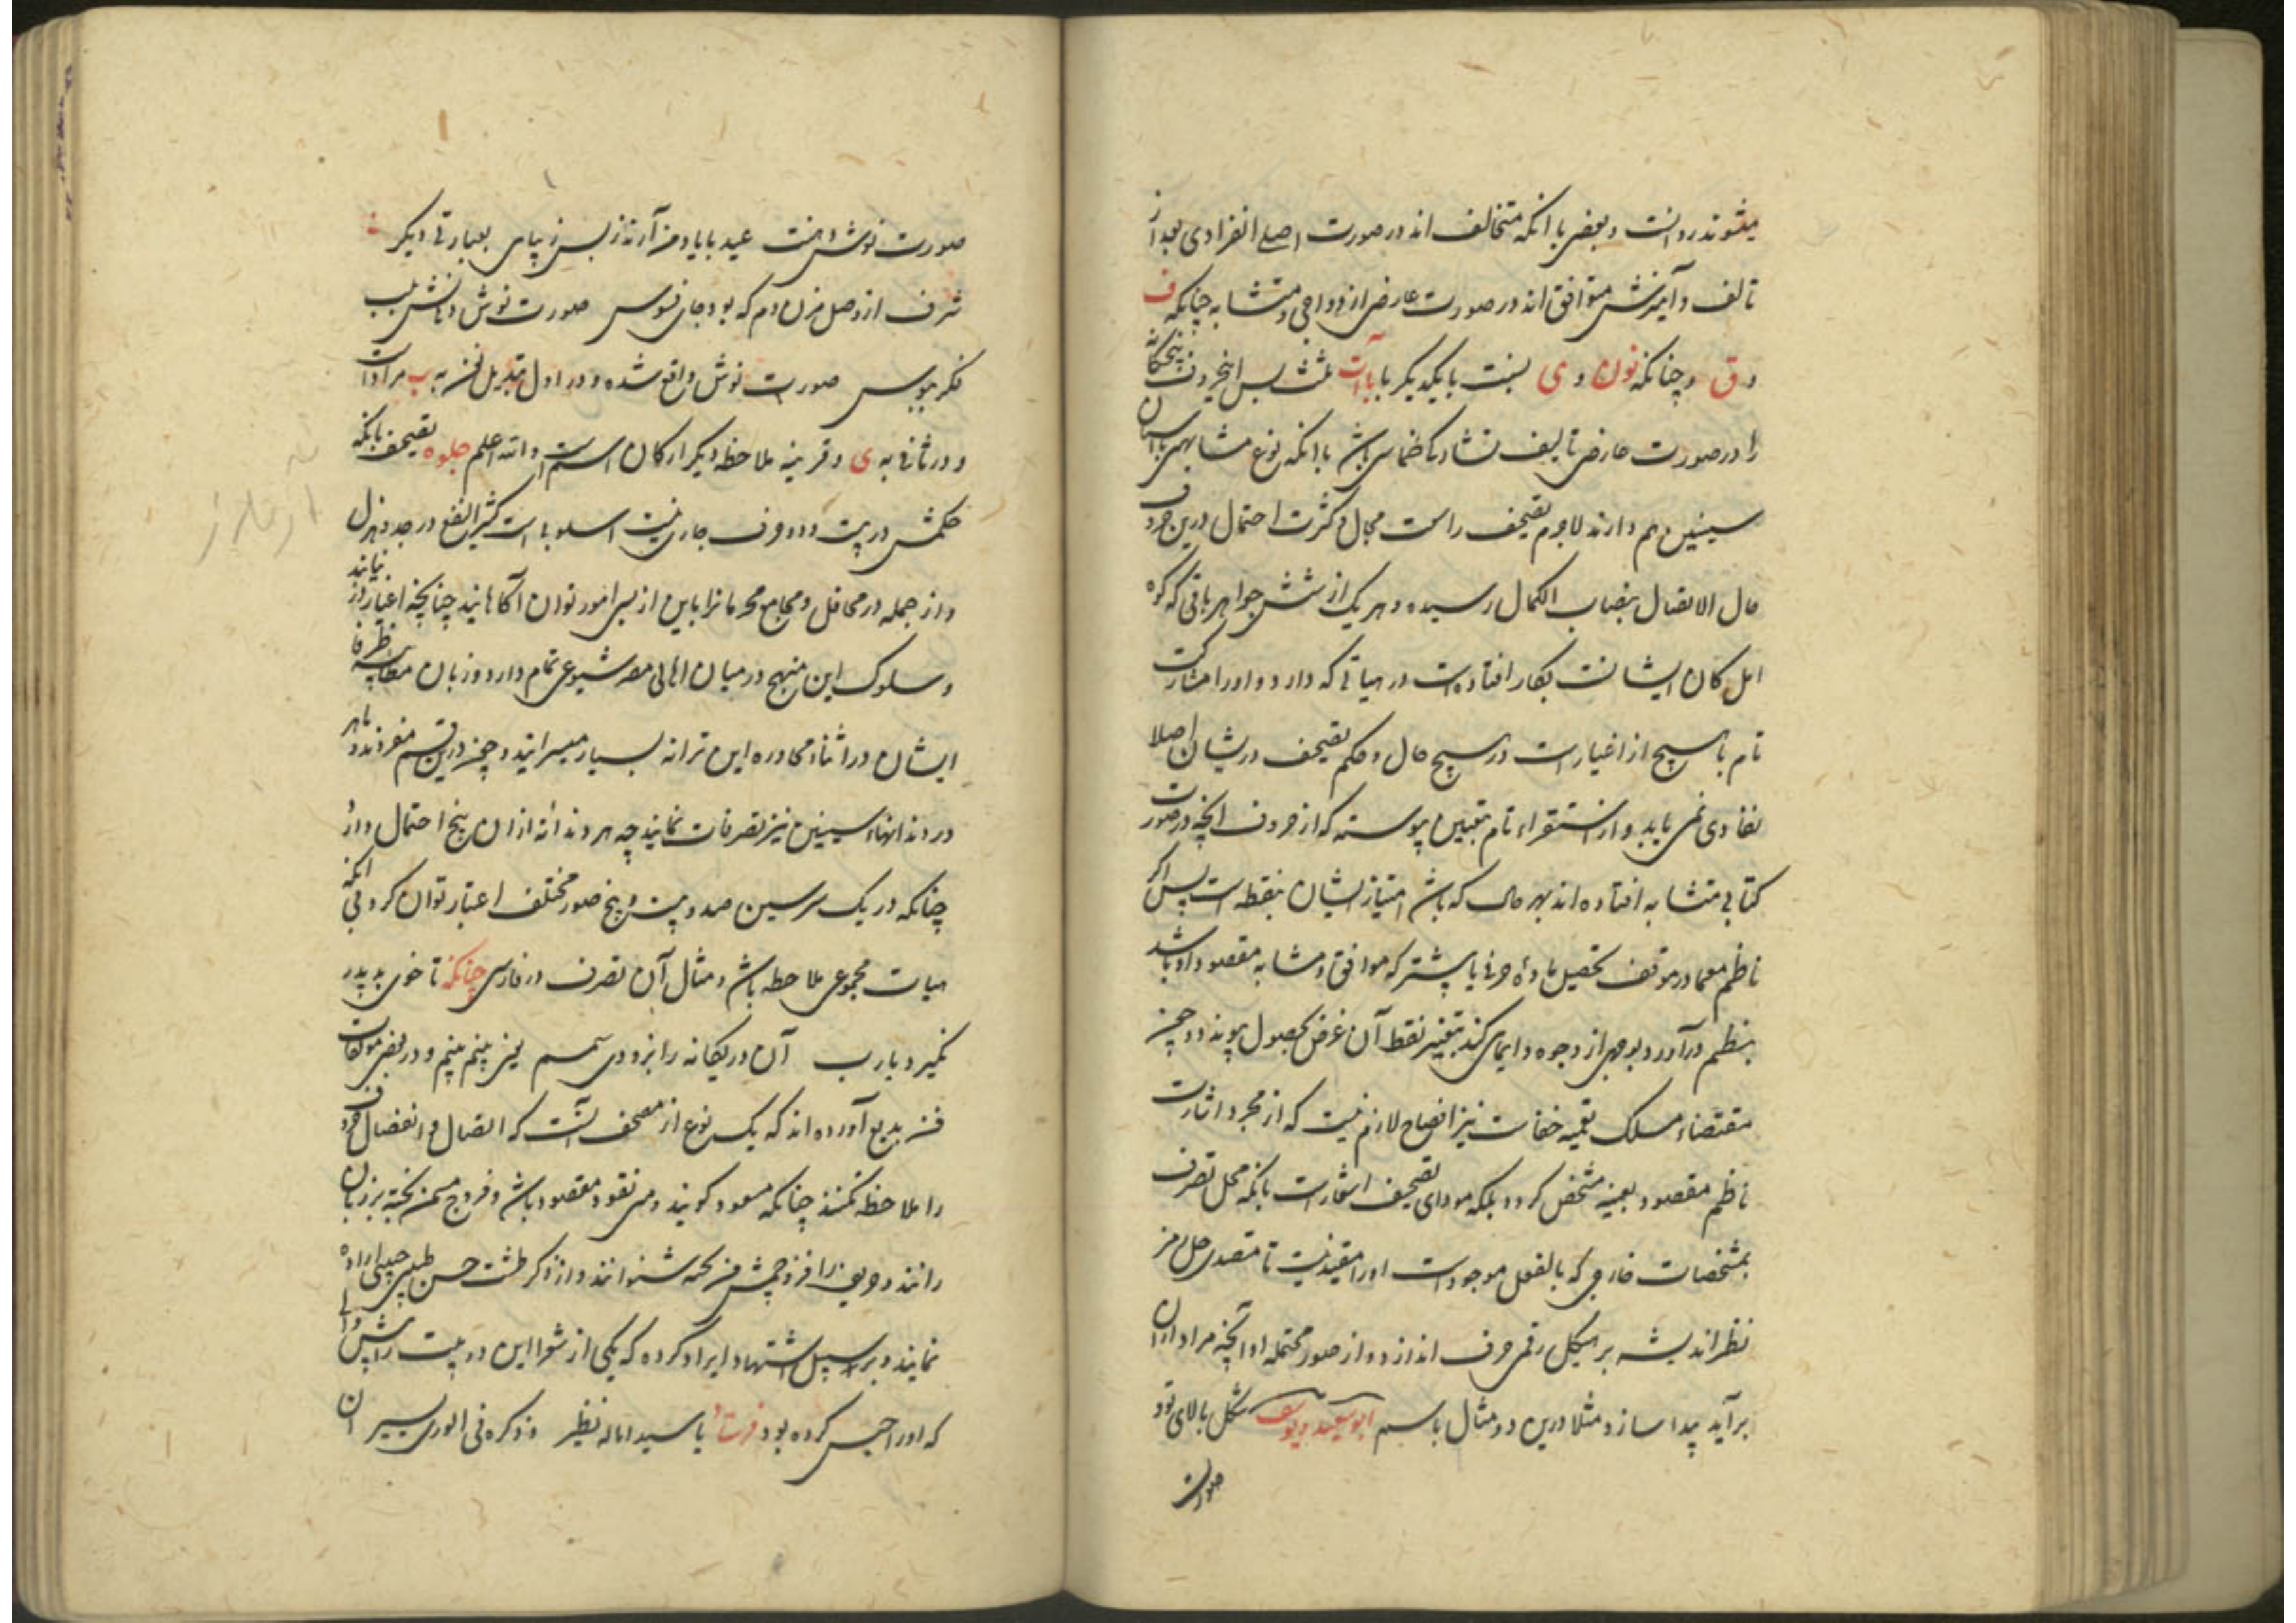 میشوند روانست و بعضی با آنکه متخالف اند در صورت اصلی انفرادی بعد از
تالف و آمیزش متوافق اند در صورت عارضی ازدواجی و متشابه چنانکه ف
و ق و چنانکه نون و ی نسبت با یکدیگر با باات ثلث پس این حروف پنجگانه
را در صورت عارضی تالیف باشد با آنکه نوع مشابهتی با اسنان
سینین هم دارند لاجرم تصحیف راست مجال کثرت احتمال درین حروف
حال الاتصال بنصاب الکمال رسیده و هر یک از شش جواهر باقی که کوه
اهل کان ایشانست بکار افتاده است در هیاتی که دارد و او را مشارکت
تام با هیچ از اغیار است در هیچ حال و حکم تصحیف در یشان اصلا
نفادی نمی یابد و از استقراء تام بتبیین پیوسته که از حروف انچه در صورت
کتابی متشابه افتاده اند بهر حال که باشد امتیاز ایشان بنقطه است پس اگر
ناظم معما در موقف تحصیل ماده حرفی یا بیشتر که موافق و مشابه مقصود او باشد
بنظم درآورد و بوجهی از وجوه و ایمای کند بتغییر نقط آن غرض بحصول پیوندد و چون
مقتضاء مسلک تعمیه خفاست نیز افصاح لازم نیست که از مجرد اشارت
ناظم مقصود بعینه مشخص کردد بلکه مودای تصحیف اشعارست بانکه محل تصرف
بمشخصات خارجی که بالفعل موجودست او را مقید نیست تا متصدی حل رمز
نظر اندیشه بر هیکل رقمی حرف اندازد و از صور محتمله او آنچه مراد از ان
برآید پیدا سازد مثلا درین دو مثال باسم ابوسعید و یوسف شکل بالای تو
صورت
صورت نوش و هست عید بابا و من آرند ز بس زیبایی بعبارتی دیکر
شرف از وصل مزن دم که بود جای فسوس صورت نوش دهانش بلب
فکر ببوس صورت نوش واقع شده و در اول تبدیل به ب مرادست
و در ثانی به ی و قرینه ملاحظه دیکر ارکان اسم است و الله اعلم جلوه تصحیف بانکه
حکمش در بیست و دو حرف جاری نیست اسلوبی است کثیر النفع در جد و هزل
و از جمله در محافل و مجامع محرمانرا باین از بسی امور توان آکاهانید چنانچه اغیار در نیابند
و سلوک این منهج در میان اهالی مصر شیوعی تمام دارد و زبان مطایبه ظرفا
ایشان در اثناء محاوره این ترانه بسیار میسرایند و چون درین قسم متفردند و ماهر
در دندانهاء سینین نیز تصرفات نمایند چه هر دندانه ازان پنج احتمال دارد
چنانکه در یک سر سین صد و بیست و پنج صور مختلف اعتبار توان کرد بی آنکه
هیات مجموعی ملاحظه باشد و مثال آن تصرف در فارسی چنانکه تا خوی بد پدر
نکیرد یارب آن در یکانه را بزودی سمسم یعنی پنیم بینم و در بعضی مولفات
فن بدیع آورده اند که یک نوع از مصحف آنست که اتصال و انفصال حروف
را ملاحظه نکنند چنانکه مسعود کویند و می نقود مقصود باشد و
رانند شنوانند و از ذکر طشت حسن طبیبی چینی اراده
نمایند و بر سبیل استشهاد ایراد کرده که یکی از شعرا این دو بیت را پیش والی
که او را حبس کرده بود فرستاد یا سیدا ماله نظیر و ذکره فی الوری یسیر ان